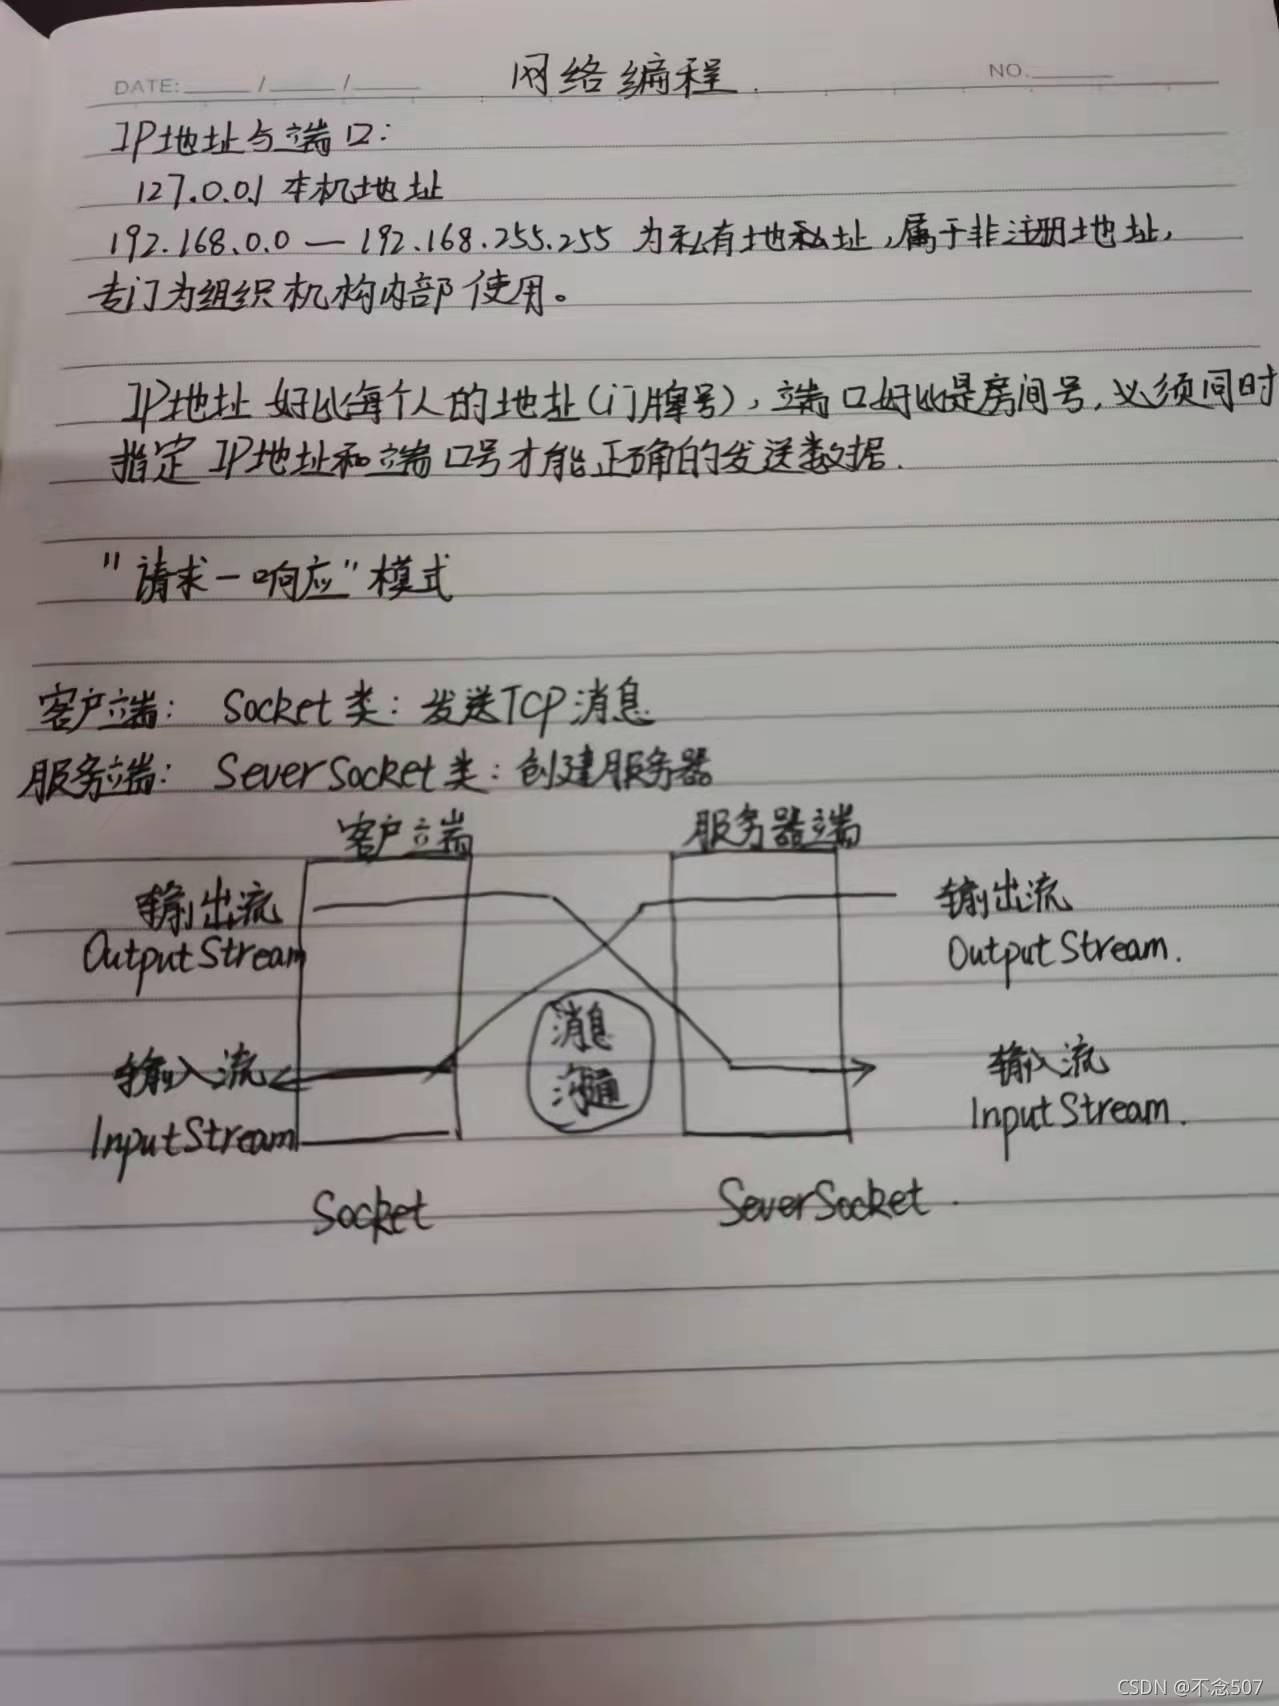 网络编程.
DATE: / /
NO.
IP地址与端口:
127.0.0.1 本机地址
192.168.0.0 — 192.168.255.255 为私有地私址,属于非注册地址,
专门为组织机构内部使用。
IP地址好比每个人的地址(门牌号),端口好比是房间号,必须同时
指定IP地址和端口号才能正确的发送数据.
"请求一响应"模式
客户端: Socket类: 发送TCP消息
服务端: SeverSocket类: 创建服务器
客户端 服务器端
输出流 输出流
OutputStream OutputStream.
消息
沟通
输入流 输入流
InputStream InputStream.
Socket SeverSocket.
CSDN @不念507